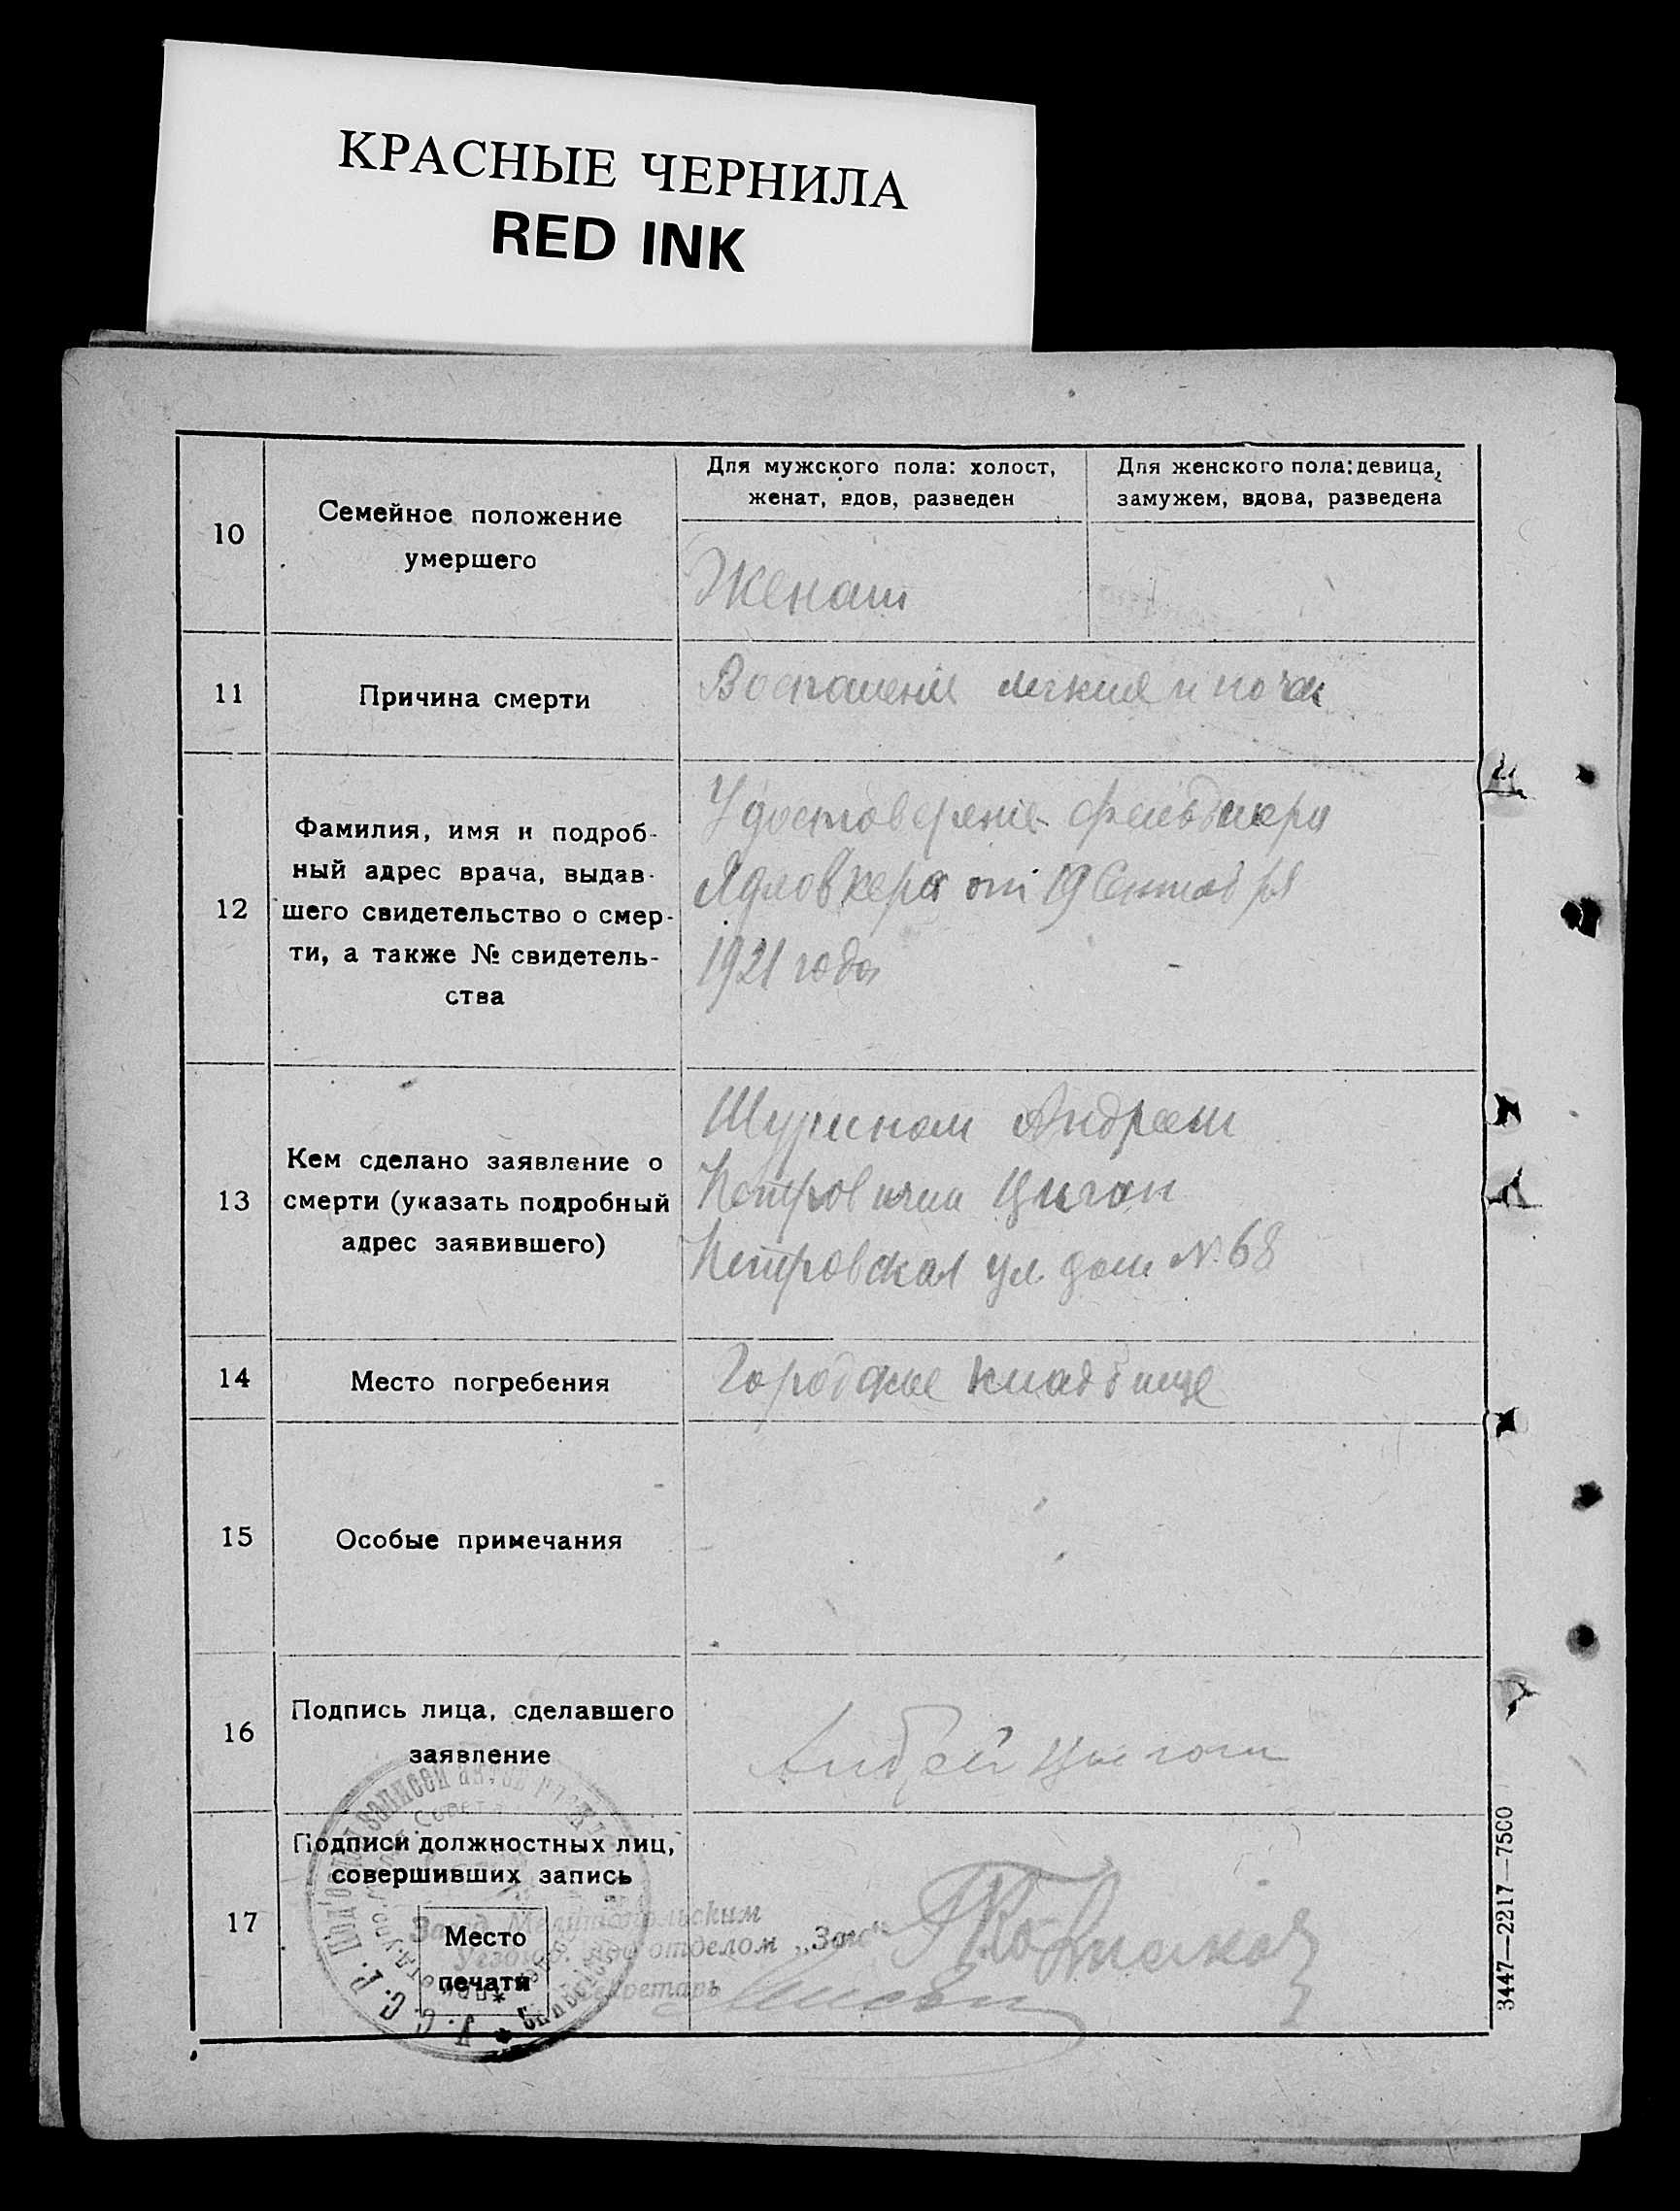 КРАСНЫЕ ЧЕРНИЛА
RED INK
10
Семейное положение
умершего
Для мужского пола: холост,
женат, вдов, разведен
Для женского пола: девица,
замужем, вдова, разведена
Женат
11
Причина смерти
Воспаление легких и почек
12
Фамилия, имя и подроб-
ный адрес врача, выдав-
шего свидетельство о смер-
ти, а также № свидетель-
ства
Удостоверение фельдшера
Ядловкера от 19 Сентября
1921 года
13
Кем сделано заявление о
смерти (указать подробный
адрес заявившего)
Шурином Андреем
Петровичем Цыган
Петровская ул. дом № 68
14
Место погребения
Городское кладбище
15
Особые примечания
16
Подпись лица, сделавшего
заявление
Андрей Цыган
17
Подписи должностных лиц,
совершивших запись
Место
печати
Завед. Мелитопольским
Уездным подотделом „Загс"
Секретарь
У. С. С. Р.
3447—2217—7500